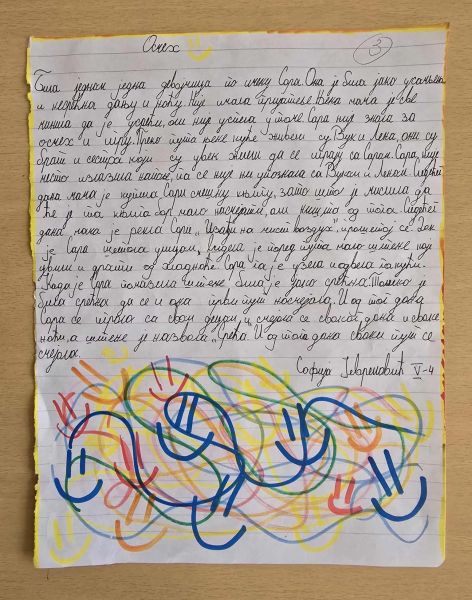 Осмех
3
Била једном једна девојчица по имену Сара. Она је била јако усамљена
и несрећна дању и ноћу. Није имала пријатеље. Њена мама је све
чинила да је, али није успела у томе. Сара није знала за
осмех и игру. Преко пута њене куће живели су Вук и Лена, они су
брат и сестра који су увек желели да се играју са Саром. Сара, није
често излазила напоље, па се није ни упознала са Вуком и Леном. Следећег
дана мама је купила Сари смешну књигу, зато што је мислила да
ће је та књига бар мало насмејати, али ништа од тога. Следећег
дана мама је рекла Сари „Изађи на чист ваздух, прошетај се“. Док
је Сара шетала улицом, видела је поред пута мало штене које
цвили и дрхти од хладноће. Сара га је узела и одвела га кући.
Када је Сара помазила штене, била је јако срећна. Толико је
била срећна да се и она први пут насмејала. И од тог дана
Сара се играла са свом децом, и смејала се сваког дана и сваке
ноћи, а штене је назвала „Срећа“. И од тога дана сваки пут се
смејала.
Софија Јевремовић V-4